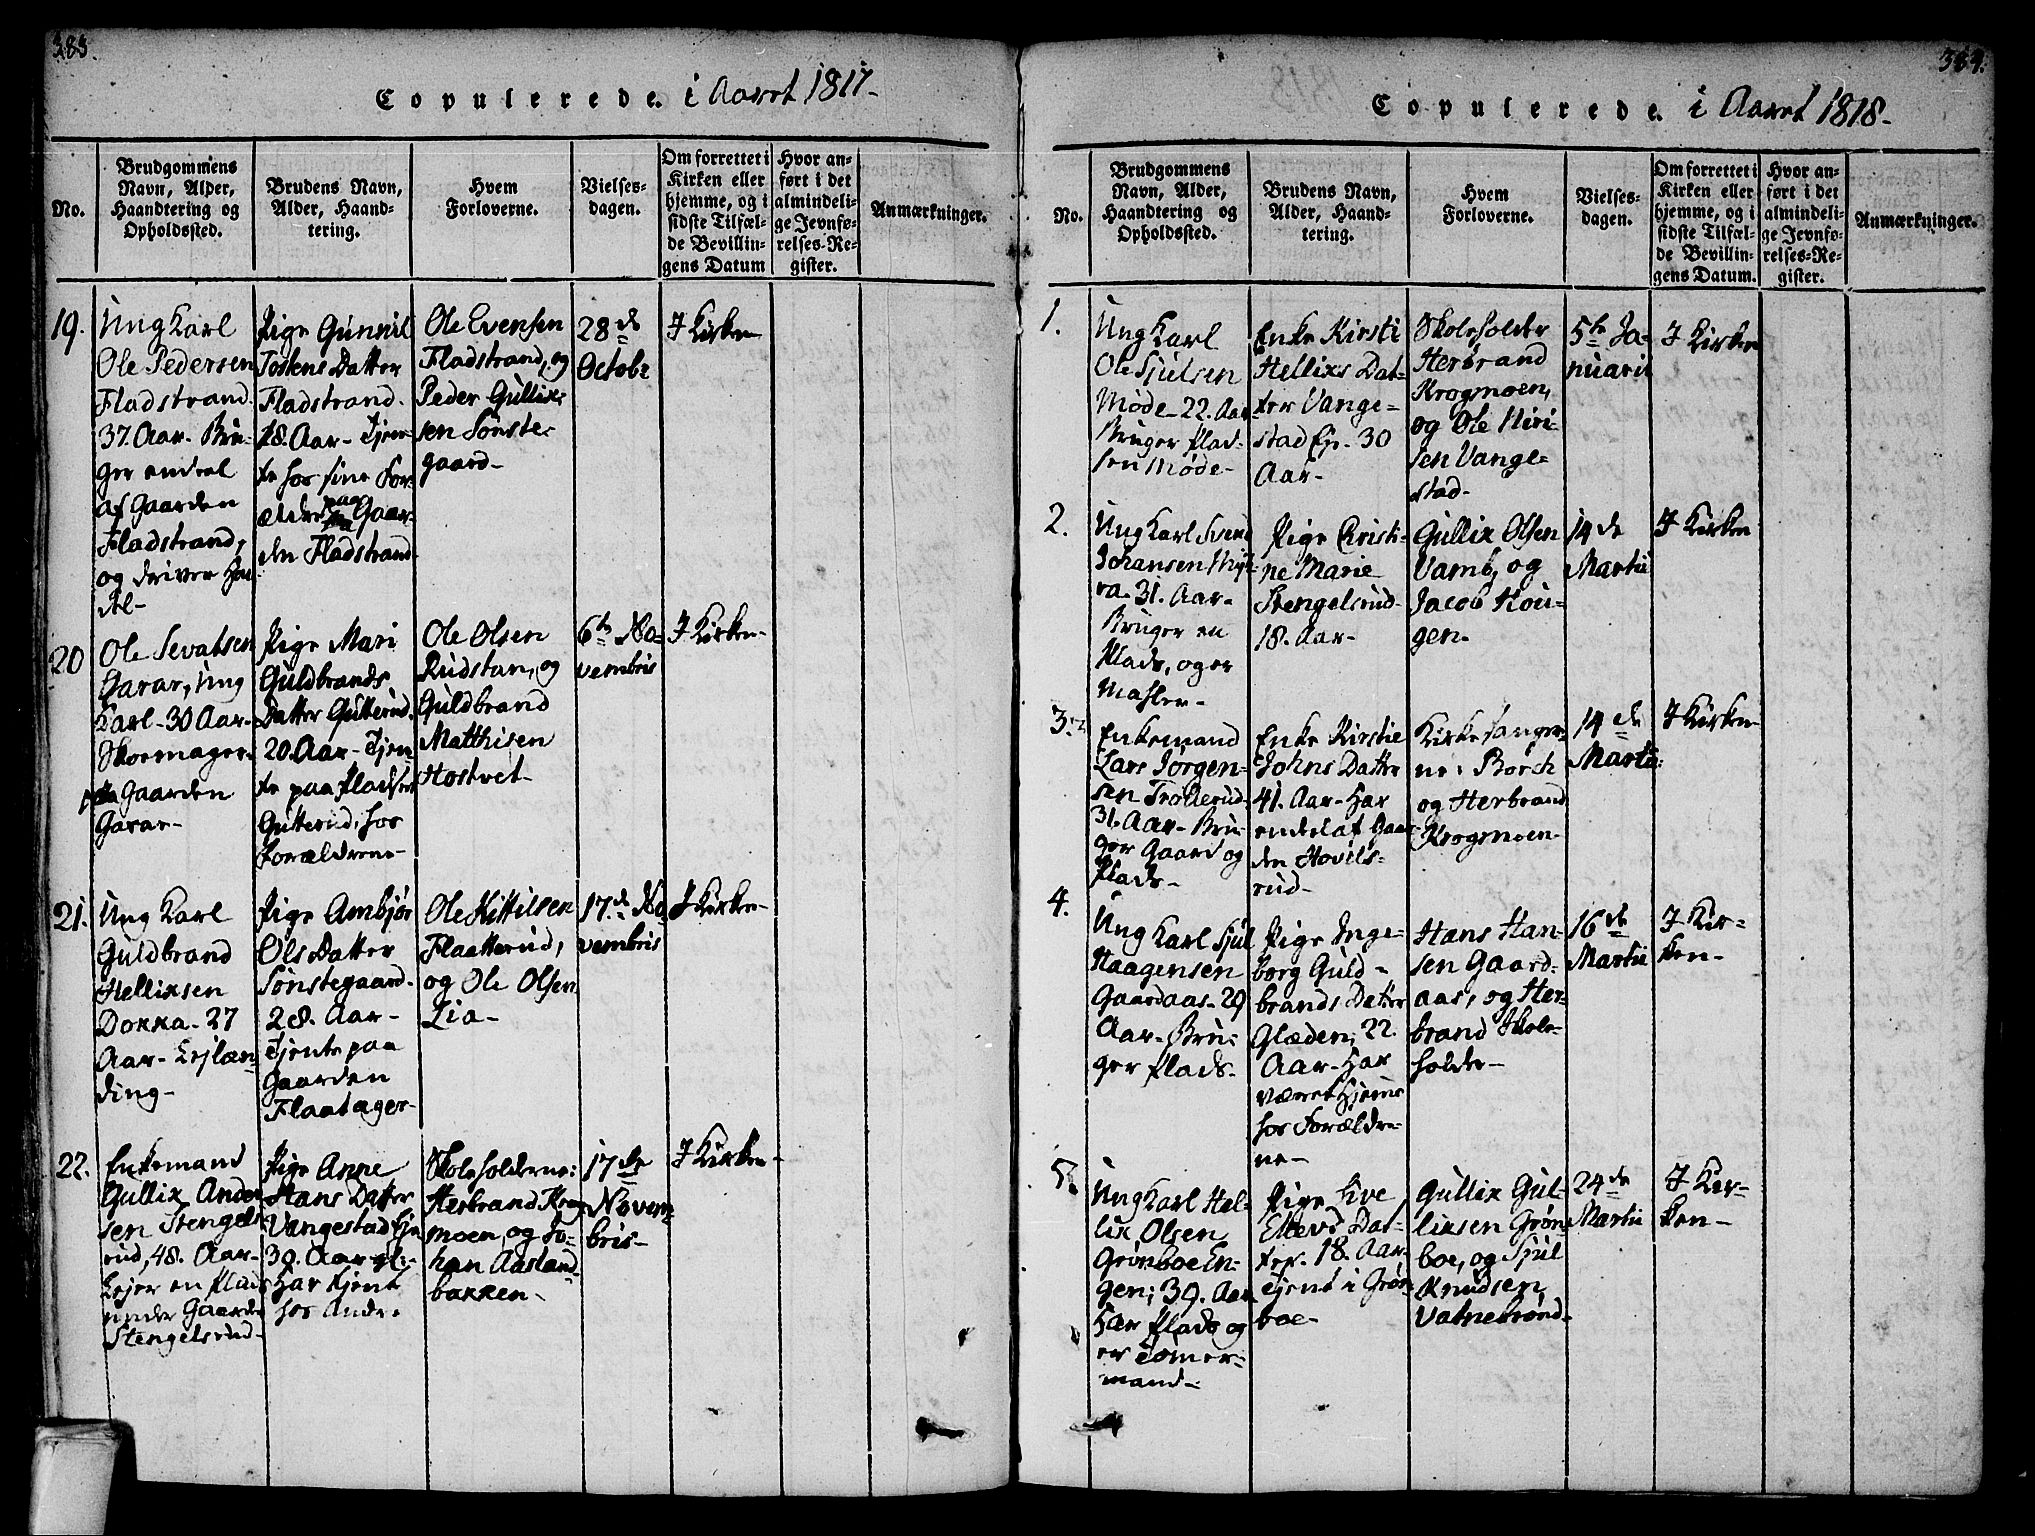 383.
Copulerede. i Aaret 1817-
No.
Brudgommens
Navn, Alder,
Haandtering og
Opholdssted.
Brudens Navn,
Alder, Haand-
tering.
Hvem
Forloverne.
Vielses-
dagen.
Om forrettet i
Kirken eller
hjemme, og i
sidste Tilfæl-
de Bevillin-
gens Datum
Hvor an-
ført i det
almindeli-
ge Jevnfø-
relses-Re-
gister.
Anmærkninger.
19.
Ung Karl
Ole Pedersen
Fladstrand.
37. Aar. Bru-
ger endeel
af Gaarden
Fladstrand,
og driver Han-
del-
Pige Gunnil
Tostens Datter
Fladstrand.
18. Aar- Tjen-
te hos sine For-
ældre paa Gaar-
den Fladstrand
Ole Evensen
Fladstrand, og
Peder Gullik-
sen Sønste-
gaard-
28de
Octobr
I Kirken
20
Ole Sevatsen
Garar, Ung
Karl- 30 Aar-
Skoemager
paa Gaarden
Garar-
Pige Mari
Guldbrands
Datter Gutterud.
20. Aar- Tjen
te paa Pladsen
Gutterud, hos
Forældrene-
Ole Olsen
Rudstan, og
Guldbrand
Matthisen
Hostvet-
6te No-
vembris
I Kirken-
21.
Ung Karl
Guldbrand
Helliksen
Dokka- 27
Aar- Lejlæn-
ding-
Pige Ambjør
Ols Datter
Sønstegaard-
28. Aar-
Tjente paa
Gaarden
Flaatager-
Ole Kittilsen
Flaatterud,
og Ole Olsen
Lia-
17de No
vembris
I Kirken-
22.
Enkemand
Gullix Ander
sen Stengels-
rud, 48. Aar-
Lejer en Plads
under Gaarden
Stengelsrud-
Pige Anne
Hans Datter
Vangestad Ejn
30. Aar
Har tjent
hos Andre
Skoleholderne:
Herbrand Krog
moen, og Jo-
han Aasland-
bakken-
17de
Novem
bris-
I Kirken-
384.
Copulerede. i Aaret 1818-
No.
Brudgommens
Navn, Alder,
Haandtering og
Opholdssted.
Brudens Navn,
Alder, Haand-
tering.
Hvem
Forloverne.
Vielses-
dagen.
Om forrettet i
Kirken eller
hjemme, og i
sidste Tilfæl-
de Bevillin-
gens Datum.
Hvor an-
ført i det
almindeli-
ge Jevnfø-
relses-Re-
gister.
Anmærkninger.
1.
Ung Karl
Ole Sjulsen
Møde- 22. Aar
Bruger Plad-
sen Møde-
Enke Kirsti
Hellixs Dat-
ter Vange-
stad Ej. 30
Aar-
Skoleholder
Herbrand
Krogmoen,
og Ole Niri-
sen Vange-
stad-
5te Ja-
nuarii
I Kirken
2.
Ung Karl Svend
Johansen
ra. 31. Aar-
Bruger en
Plads, og er
Mahler-
Pige Cristi-
ne Marie
Stengelsrud-
18. Aar-
Gullix Olsen
Vamb, og
Jacob Hou-
gen-
14de
Martii
I Kirken
3.
Enkemand
Lars Jørgen-
sen Trollerud
31. Aar- Bru-
ger Gaard og
Plads-
Enke Kirstie
Johns Datter
41. Aar- Har
endel af Gaar
den Hovels-
rud-
Kirkesanger-
ne: Borch
og Herbrand
Krogsmoen-
14de
Martii
I Kirken-
4.
Ung Karl Sjul
Haagensen
Gaardaas- 29
Aar- Bru-
ger Plads-
Pige Inge-
borg Guld-
brands Datter
Glæden, 22
Aar- Har
været hjeme
hos Forældre-
ne-
Hans Han-
sen Gaard-
aas, og Her-
brand Skole-
holder-
16de
Martii
I Kir-
ken-
5.
Ung Karl Hel-
lix Olsen
Grønboe En-
gen; 39. Aar
Har Plads og
er Tømer-
mand-
Pige Live
Ellevs Dat-
ter. 18. Aar-
Tjent i Grøn
boe-
Gullix Gul-
liksen Grøn-
boe, og Sjul
Knudsen
Vatnebrønd-
24de
Martii
I Kir-
ken-